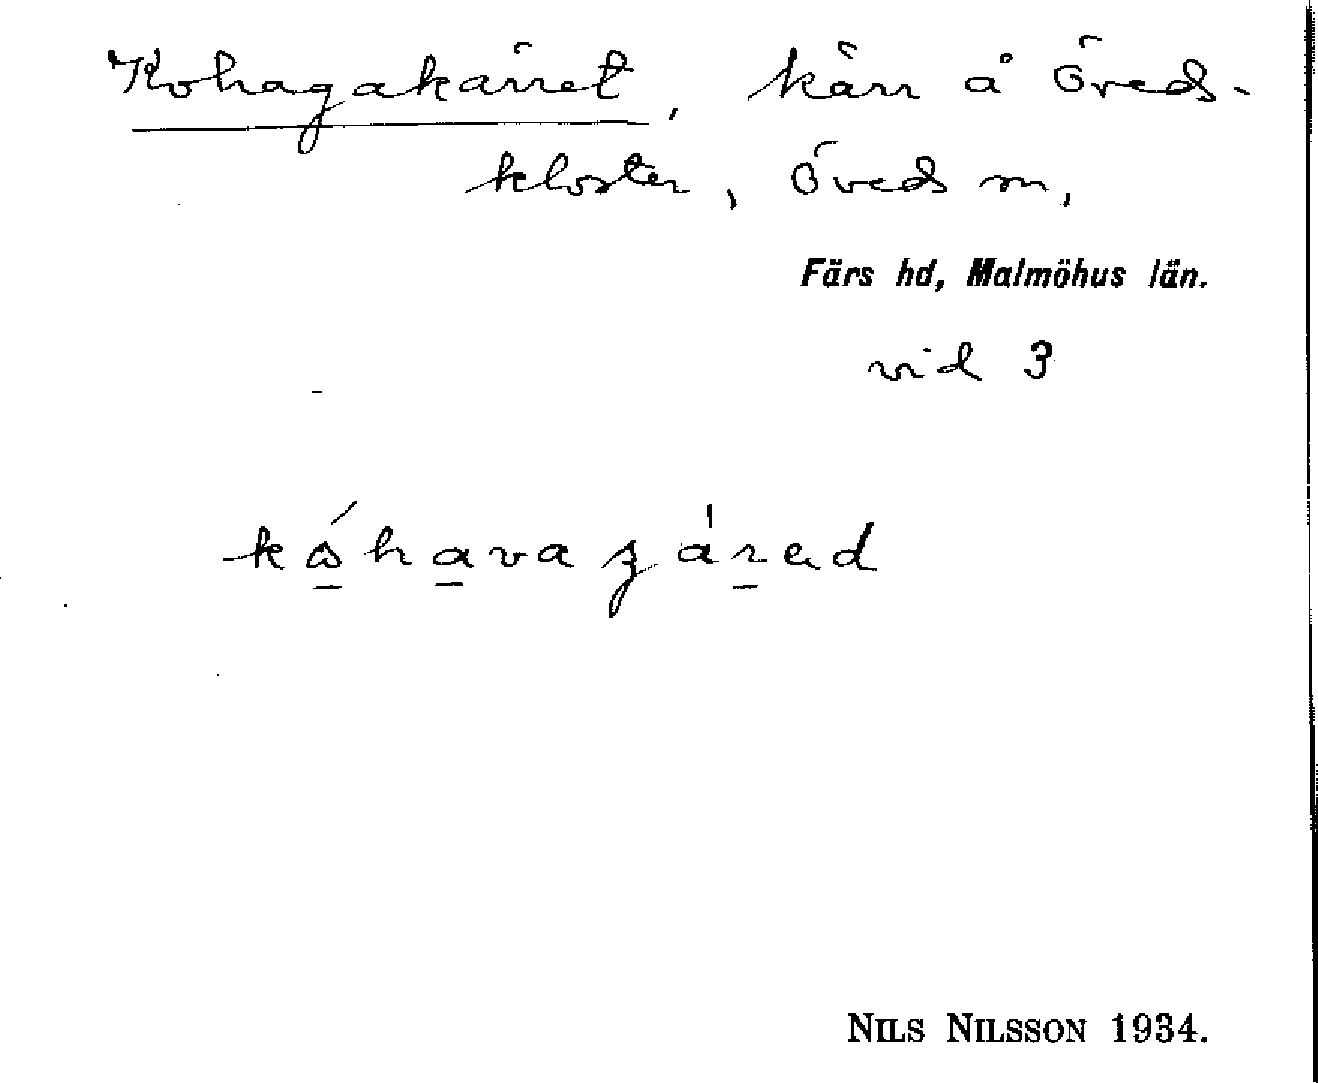 Kohagakärret, kärr å Öveds-
kloster, Öveds sn,
Färs hd, Malmöhus län.
vid 3
NILS NILSSON 1934.